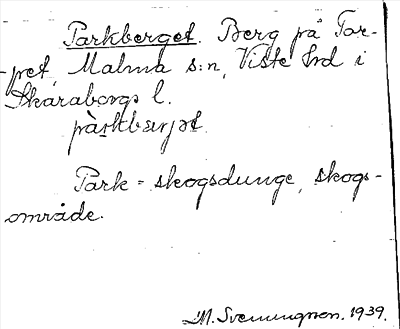 Parkberget. Berg på Tor-
pet, Malma s:n, Viste hrd i
Skaraborgs l.
Park = skogsdunge, skogs-
område.
M. Svenungson. 1939.